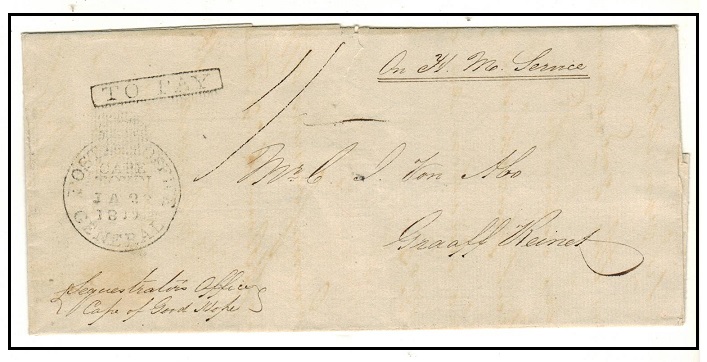 On H. M. Service
TO PAY
POST OFFICE
CAPE
TOWN
JA 2
GENERAL
Mr. C. J. Von Abo
Graaff Reinet
Sequestrator's Office
Cape of Good Hope